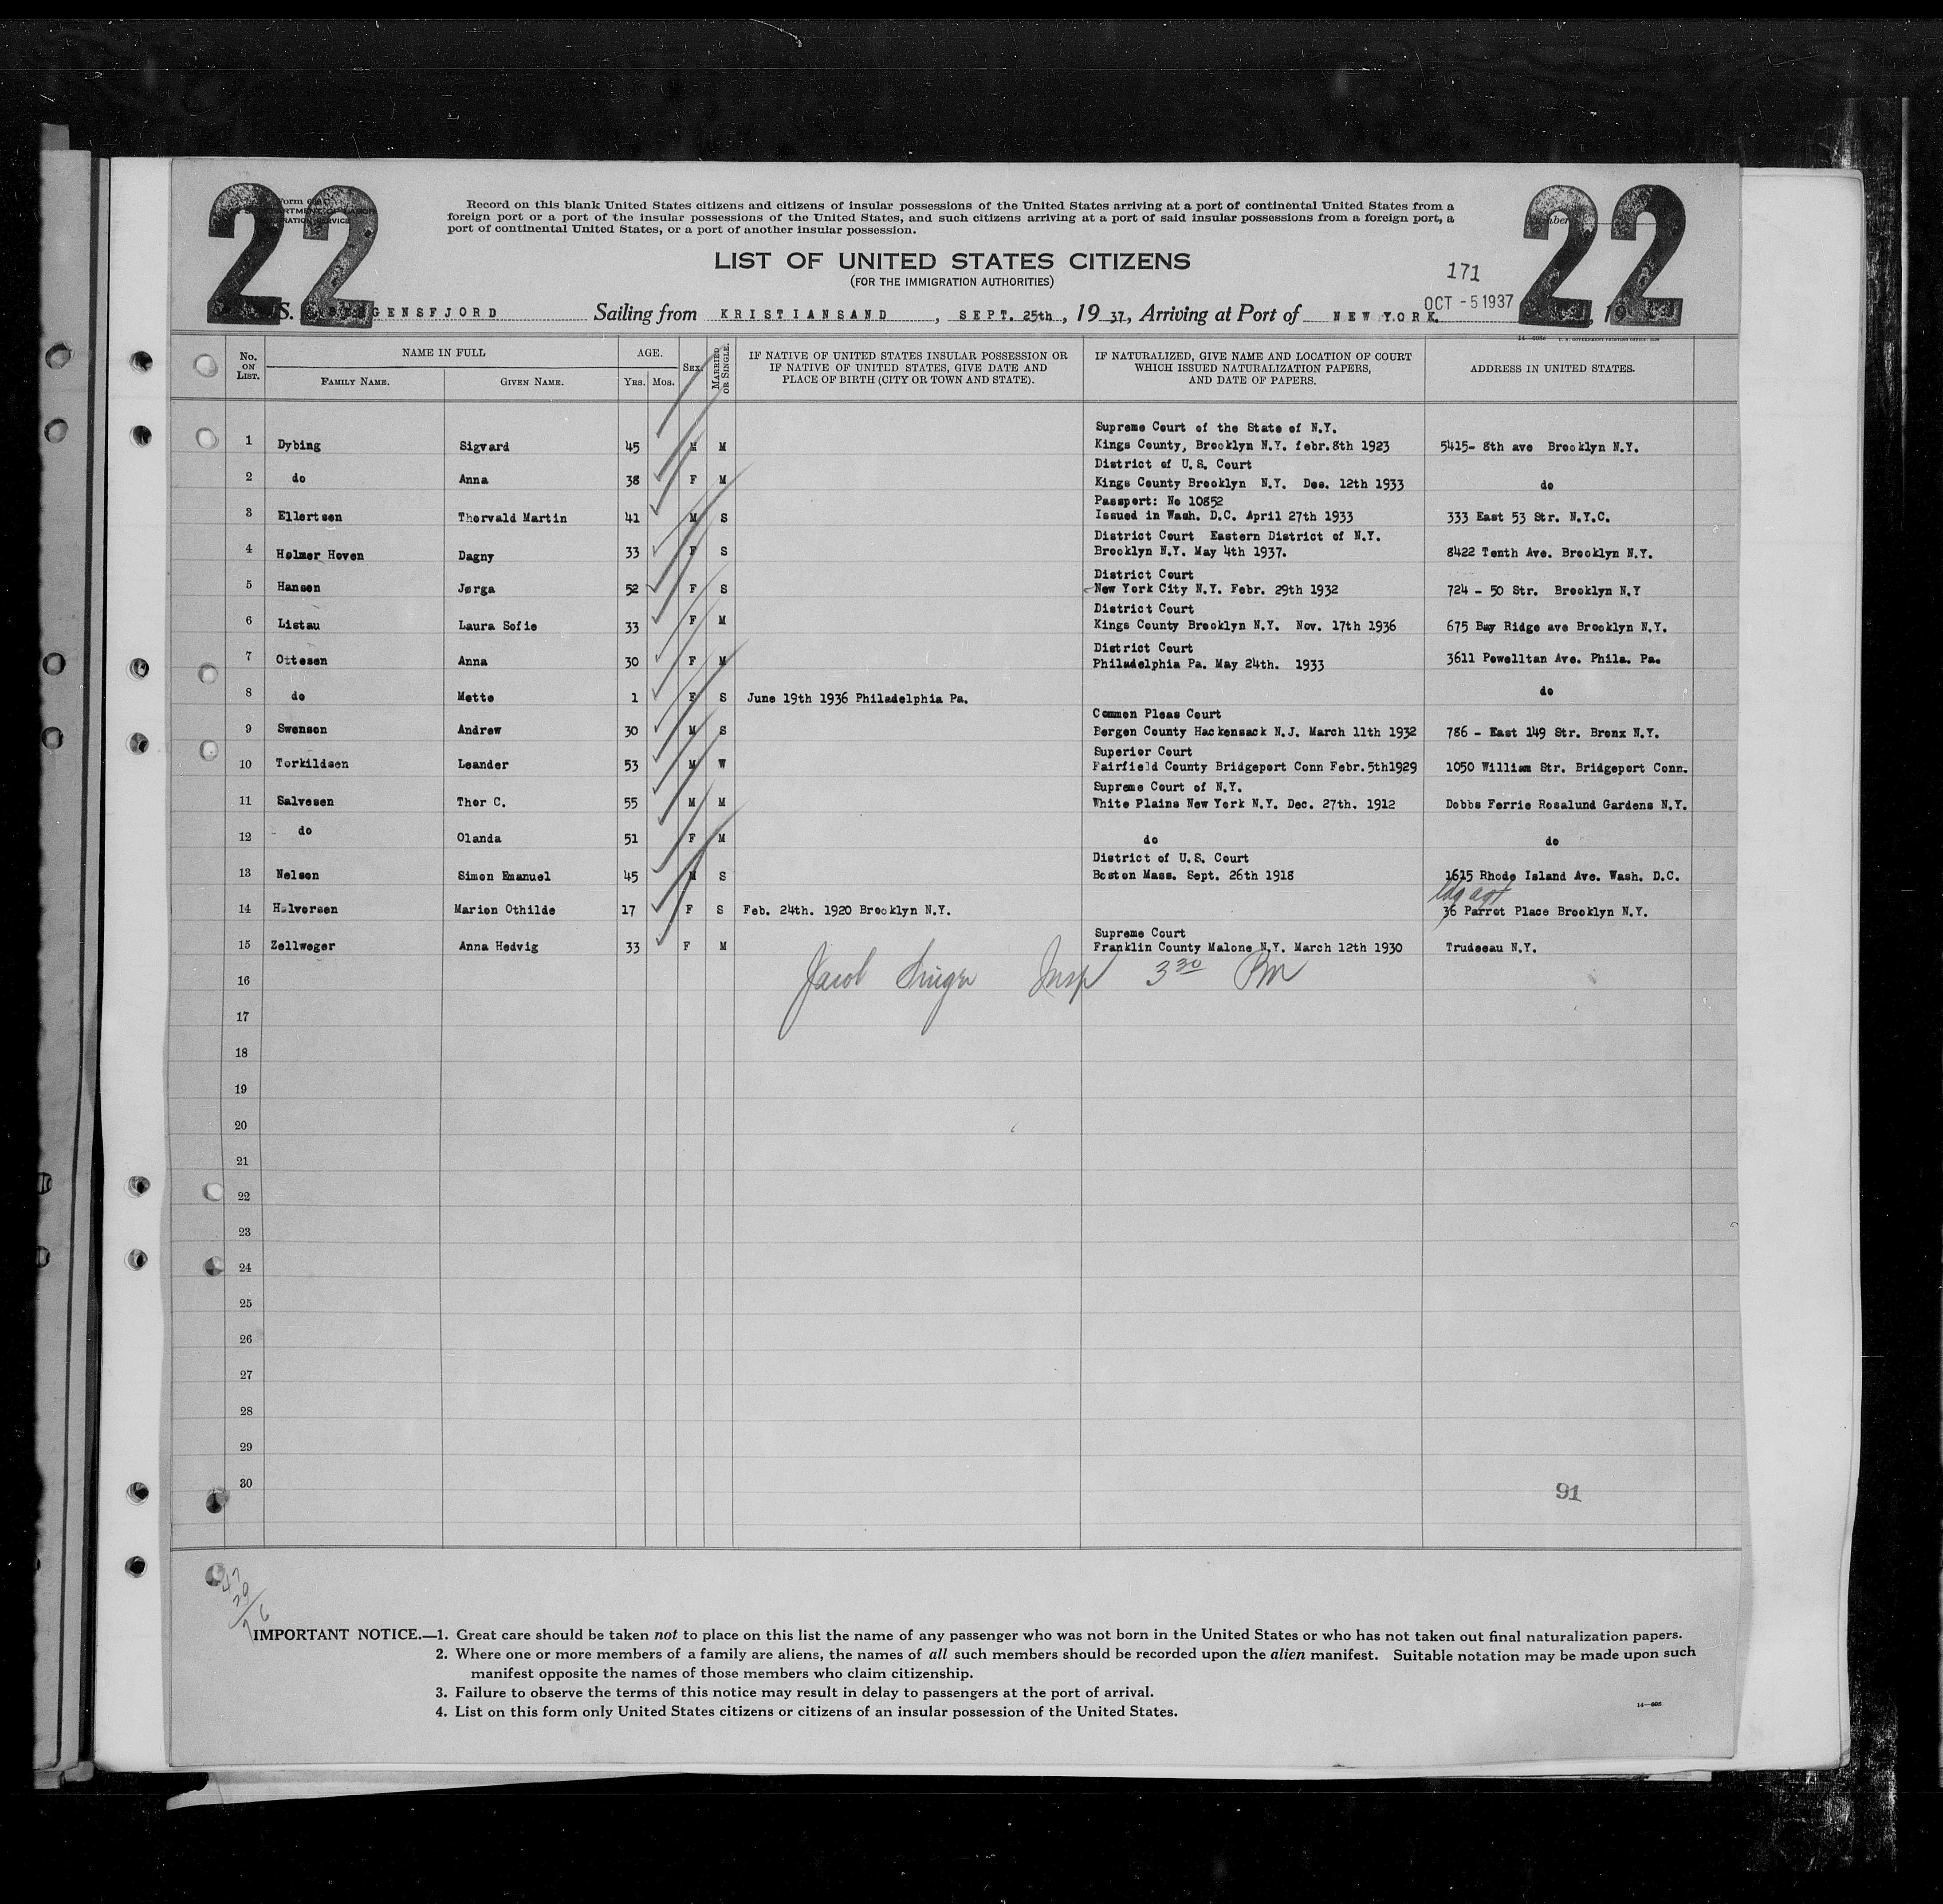 22
22
Record on this blank United States citizens and citizens of insular possessions of the United States arriving at a port of continental United States from a
foreign port or a port of the insular possessions of the United States, and such citizens arriving at a port of said insular possessions from a foreign port, a
port of continental United States, or a port of another insular possession.
LIST OF UNITED STATES CITIZENS
(FOR THE IMMIGRATION AUTHORITIES)
171
OCT - 5 1937
S. BERGENSFJORD Sailing from KRISTIANSAND, SEPT. 25th, 19 37, Arriving at Port of NEW YORK. , 19
No. ON LIST.
NAME IN FULL
FAMILY NAME. GIVEN NAME.
AGE.
YRS. MOS.
SEX.
MARRIED OR SINGLE.
IF NATIVE OF UNITED STATES INSULAR POSSESSION OR
IF NATIVE OF UNITED STATES, GIVE DATE AND
PLACE OF BIRTH (CITY OR TOWN AND STATE).
IF NATURALIZED, GIVE NAME AND LOCATION OF COURT
WHICH ISSUED NATURALIZATION PAPERS,
AND DATE OF PAPERS.
ADDRESS IN UNITED STATES.
Supreme Court of the State of N.Y.
1 Dybing Sigvard 45 M M Kings County, Brooklyn N.Y. febr.8th 1923 5415- 8th ave Brooklyn N.Y.
District of U.S. Court
2 do Anna 38 F M Kings County Brooklyn N.Y. Des. 12th 1933 do
Passport: No 10852
3 Ellertsen Thorvald Martin 41 M S Issued in Wash. D.C. April 27th 1933 333 East 53 Str. N.Y.C.
District Court Eastern District of N.Y.
4 Holmer Hoven Dagny 33 F S Brooklyn N.Y. May 4th 1937. 8422 Tenth Ave. Brooklyn N.Y.
District Court
5 Hansen Jørga 52 F S New York City N.Y. Febr. 29th 1932 724 - 50 Str. Brooklyn N.Y
District Court
6 Listau Laura Sofie 33 F M Kings County Brooklyn N.Y. Nov. 17th 1936 675 Bay Ridge ave Brooklyn N.Y.
District Court
7 Ottesen Anna 30 F M Philadelphia Pa. May 24th. 1933 3611 Powelltan Ave. Phila. Pa.
8 do Mette 1 F S June 19th 1936 Philadelphia Pa. do
Common Pleas Court
9 Swenson Andrew 30 M S Bergen County Hackensack N.J. March 11th 1932 786 - East 149 Str. Bronx N.Y.
Superior Court
10 Torkildsen Leander 53 M W Fairfield County Bridgeport Conn Febr.5th1929 1050 William Str. Bridgeport Conn.
Supreme Court of N.Y.
11 Salvesen Thor C. 55 M M White Plains New York N.Y. Dec. 27th. 1912 Dobbs Ferrie Rosalund Gardens N.Y.
12 do Olanda 51 F M do do
District of U.S. Court
13 Nelson Simon Emanuel 45 M S Boston Mass. Sept. 26th 1918 1615 Rhode Island Ave. Wash. D.C.
14 Halvorsen Marion Othilde 17 F S Feb. 24th. 1920 Brooklyn N.Y. 36 Parrot Place Brooklyn N.Y.
Supreme Court
15 Zellweger Anna Hedvig 33 F M Franklin County Malone N.Y. March 12th 1930 Trudeeau N.Y.
16 Jacob Insp 3 30 PM
17
18
19
20
21
22
23
24
25
26
27
28
29
30 91
47
29
76
IMPORTANT NOTICE.—1. Great care should be taken not to place on this list the name of any passenger who was not born in the United States or who has not taken out final naturalization papers.
2. Where one or more members of a family are aliens, the names of all such members should be recorded upon the alien manifest. Suitable notation may be made upon such
manifest opposite the names of those members who claim citizenship.
3. Failure to observe the terms of this notice may result in delay to passengers at the port of arrival.
4. List on this form only United States citizens or citizens of an insular possession of the United States.